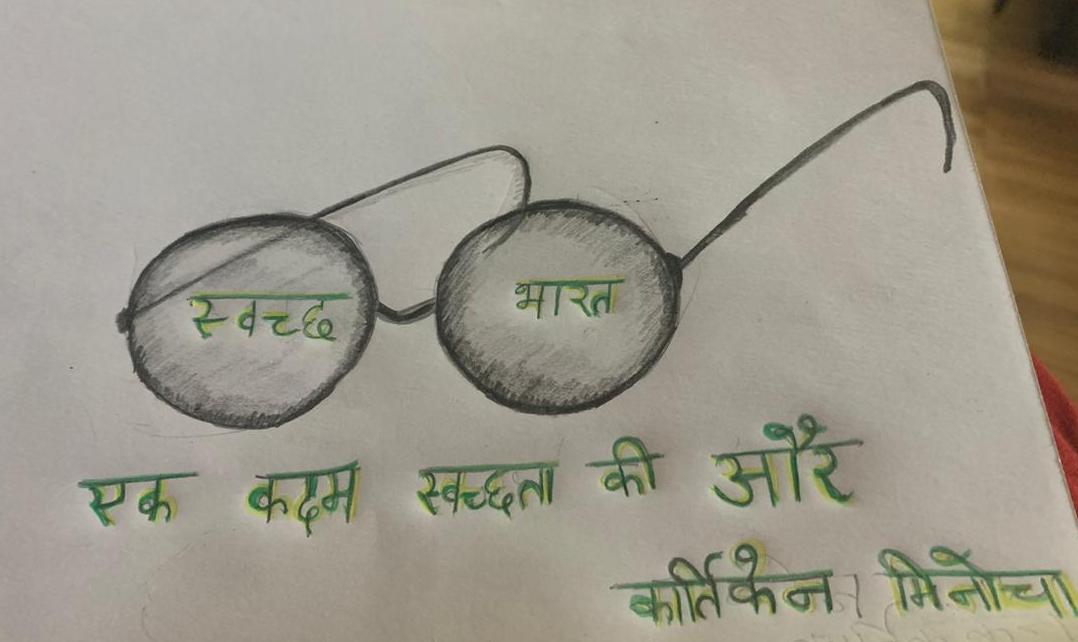 स्वच्छ भारत
एक कदम स्वच्छता की और
कार्तिकेन मिनोचा